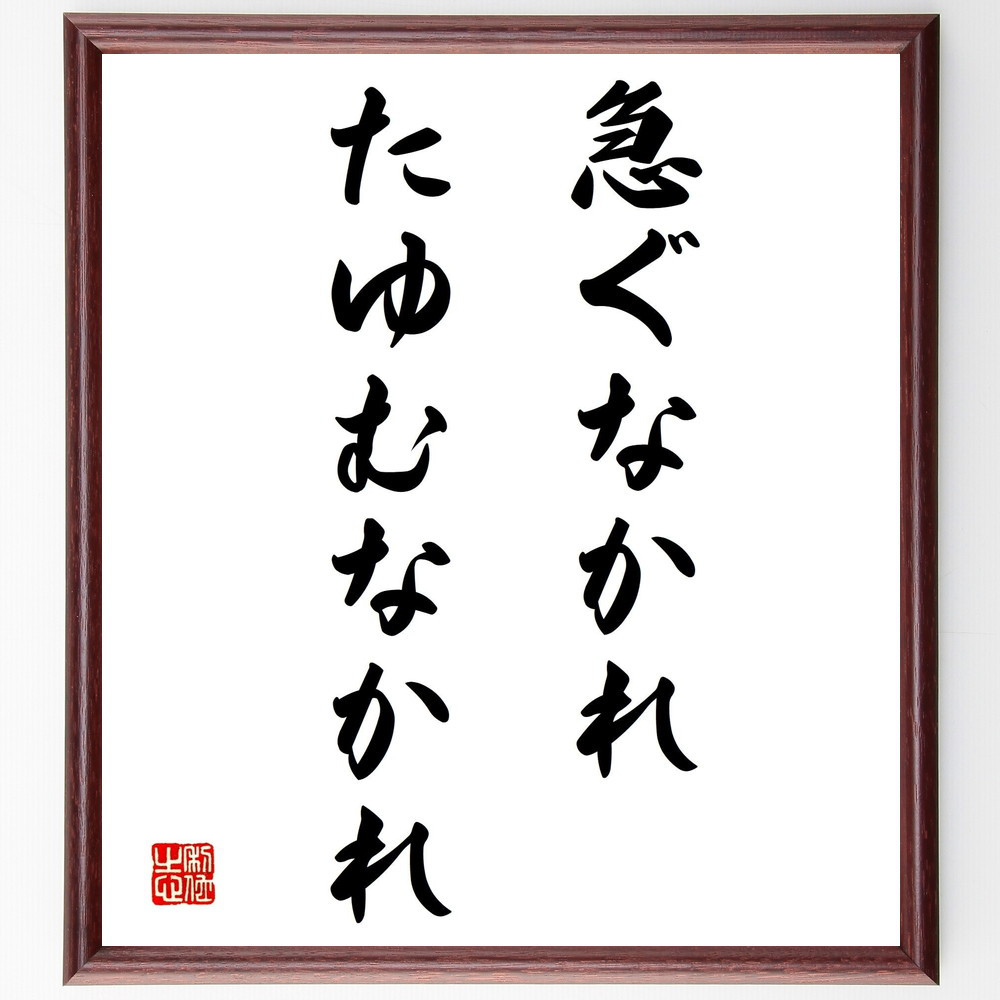 急ぐなかれ
たゆむなかれ